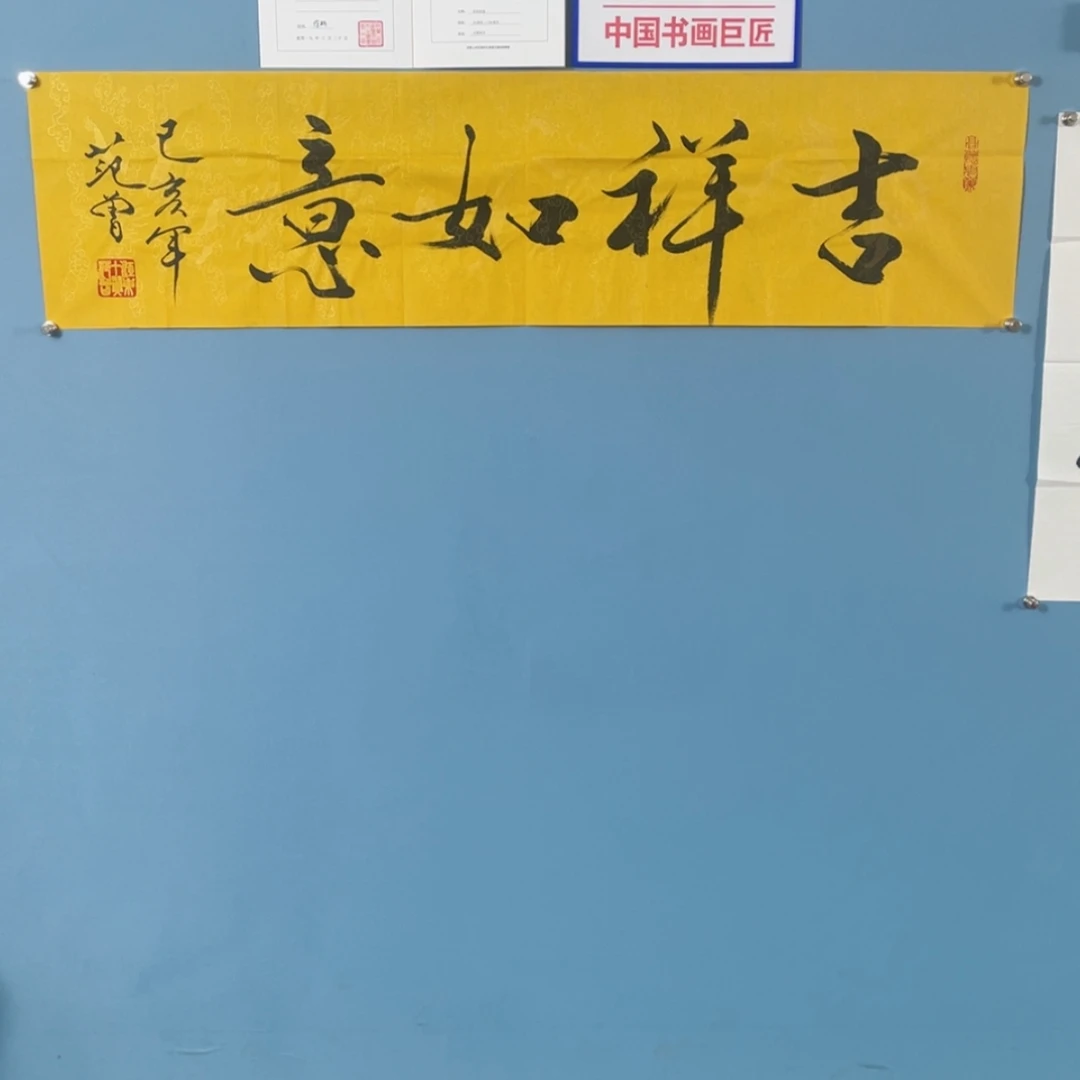 中国书画巨匠
吉祥如意
己亥年
范曾